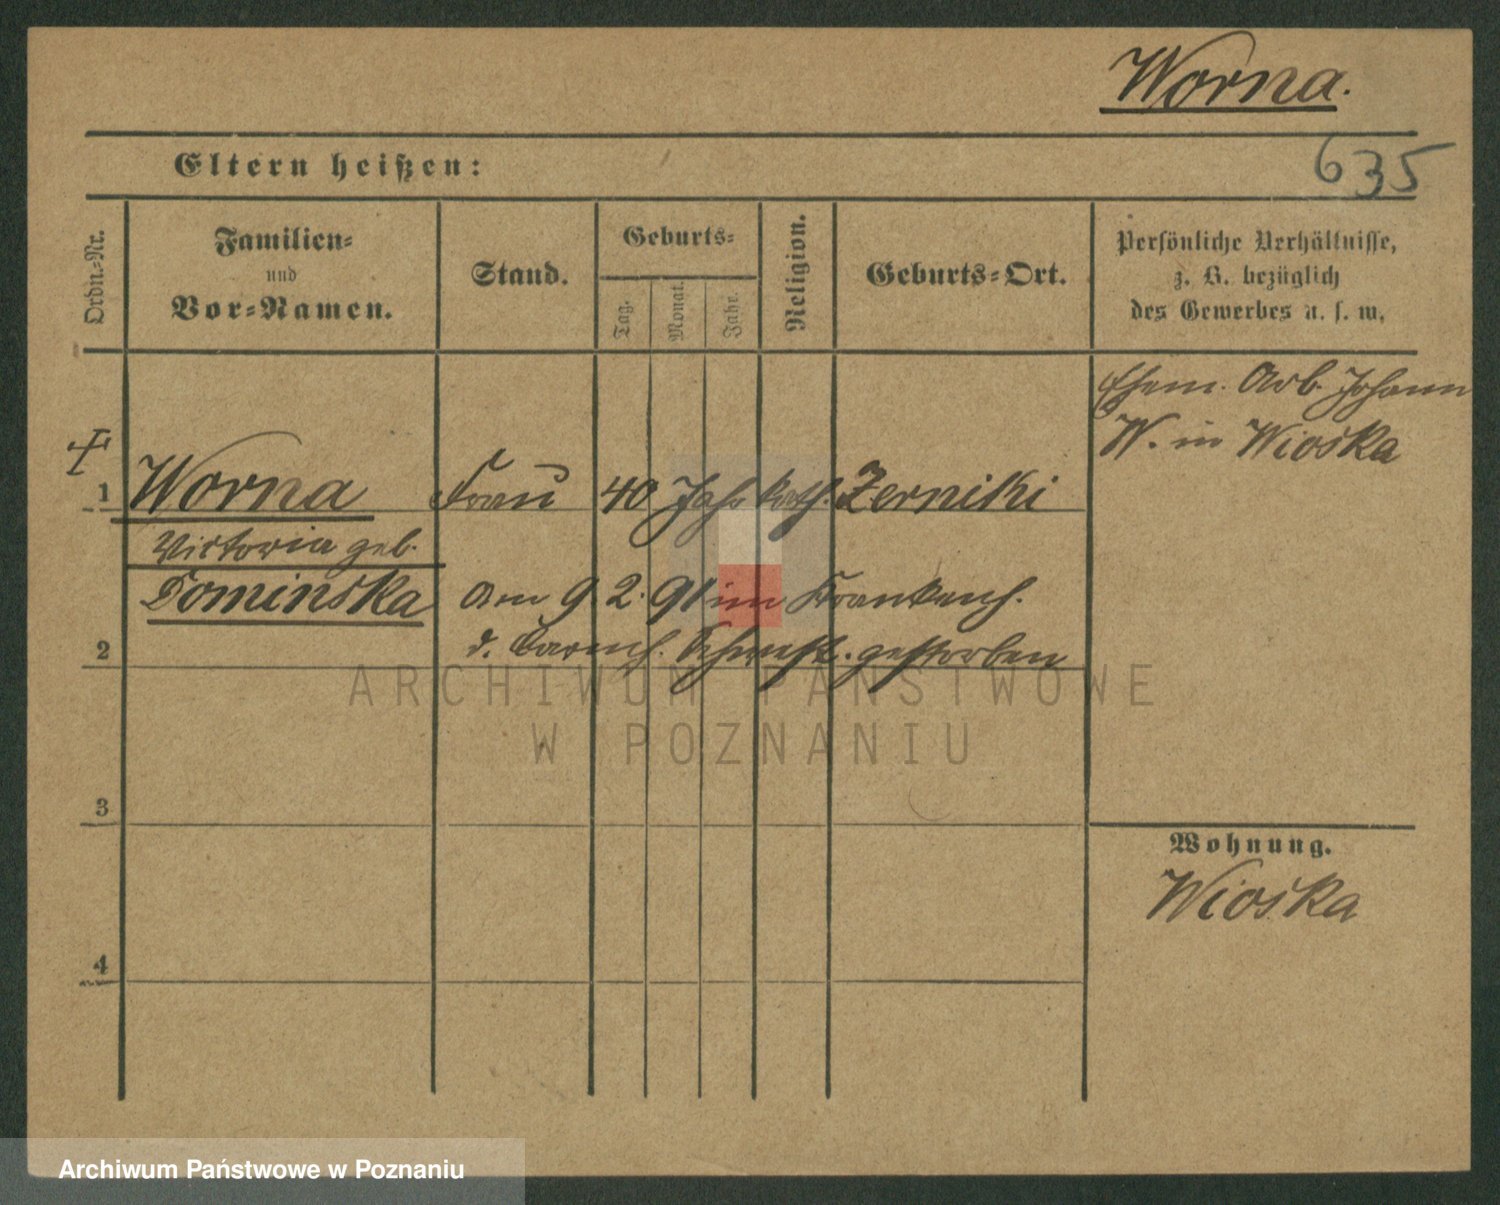 Worna.
Eltern heißen:
635
Ordn.-Nr.
Familien-
und
Vor-Namen.
Stand.
Geburts-
Tag.
Monat.
Jahr.
Religion.
Geburts-Ort.
Persönliche Verhältnisse,
z. B. bezüglich
des Gewerbes u. s. w.
Ehem. Arb. Johann
W. in Wioska
1 Worna Frau 40 Jahr kath. Zerniki
Victoria geb.
Dominska am 9. 2. 91 im Krankenh.
2 d. Barmh. Schwest. gestorben
3
Wohnung.
Wioska
4
ARCHIWUM PAŃSTWOWE
W POZNANIU
Archiwum Państwowe w Poznaniu